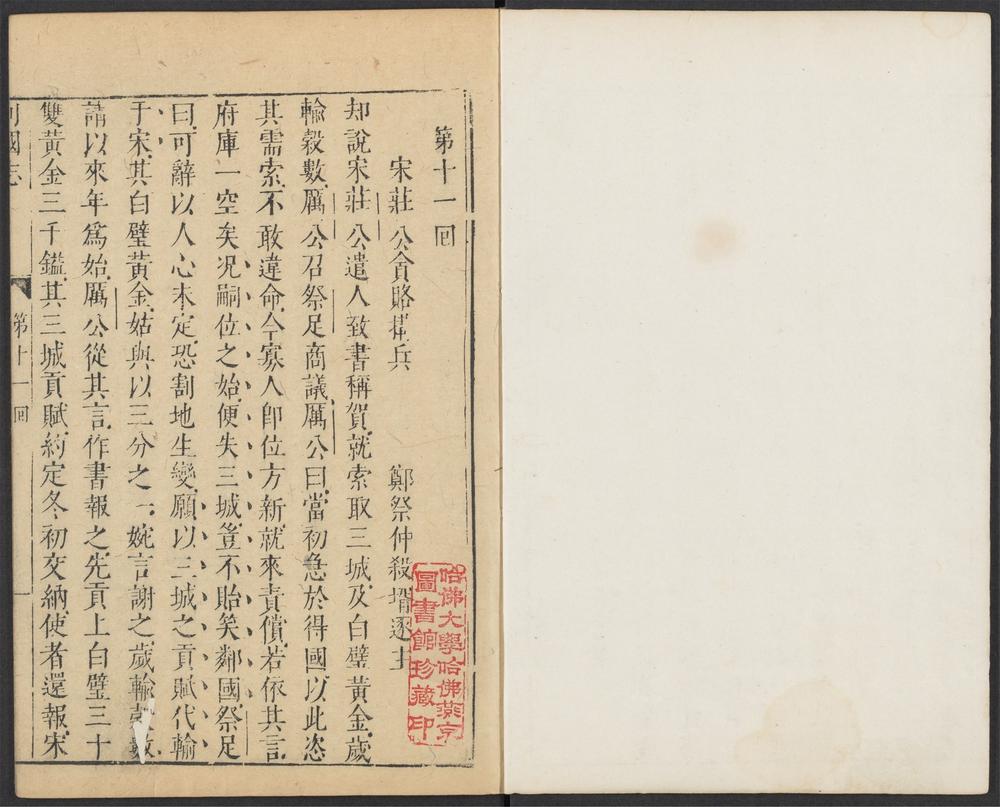 第十一回
宋莊公貪賂搆兵 鄭祭仲殺壻逐主
却說宋莊公遣人致書稱賀就索取三城及白璧黃金歲
輸穀數厲公召祭足商議厲公曰當初急於得國以此恣
其需索不敢違命今寡人卽位方新就來責償若依其言
府庫一空矣况嗣位之始便失三城豈不貽笑鄰國祭足
曰可辭以人心未定恐割地生變願以三城之貢賦代輸
于宋其白璧黃金姑與以三分之一婉言謝之歲輸穀數
請以來年爲始厲公從其言作書報之先貢上白璧三十
雙黃金三千鎰其三城貢賦約定冬初交納使者還報宋
列國志 第十一回 一
哈佛大學哈佛燕京
圖書館珍藏印